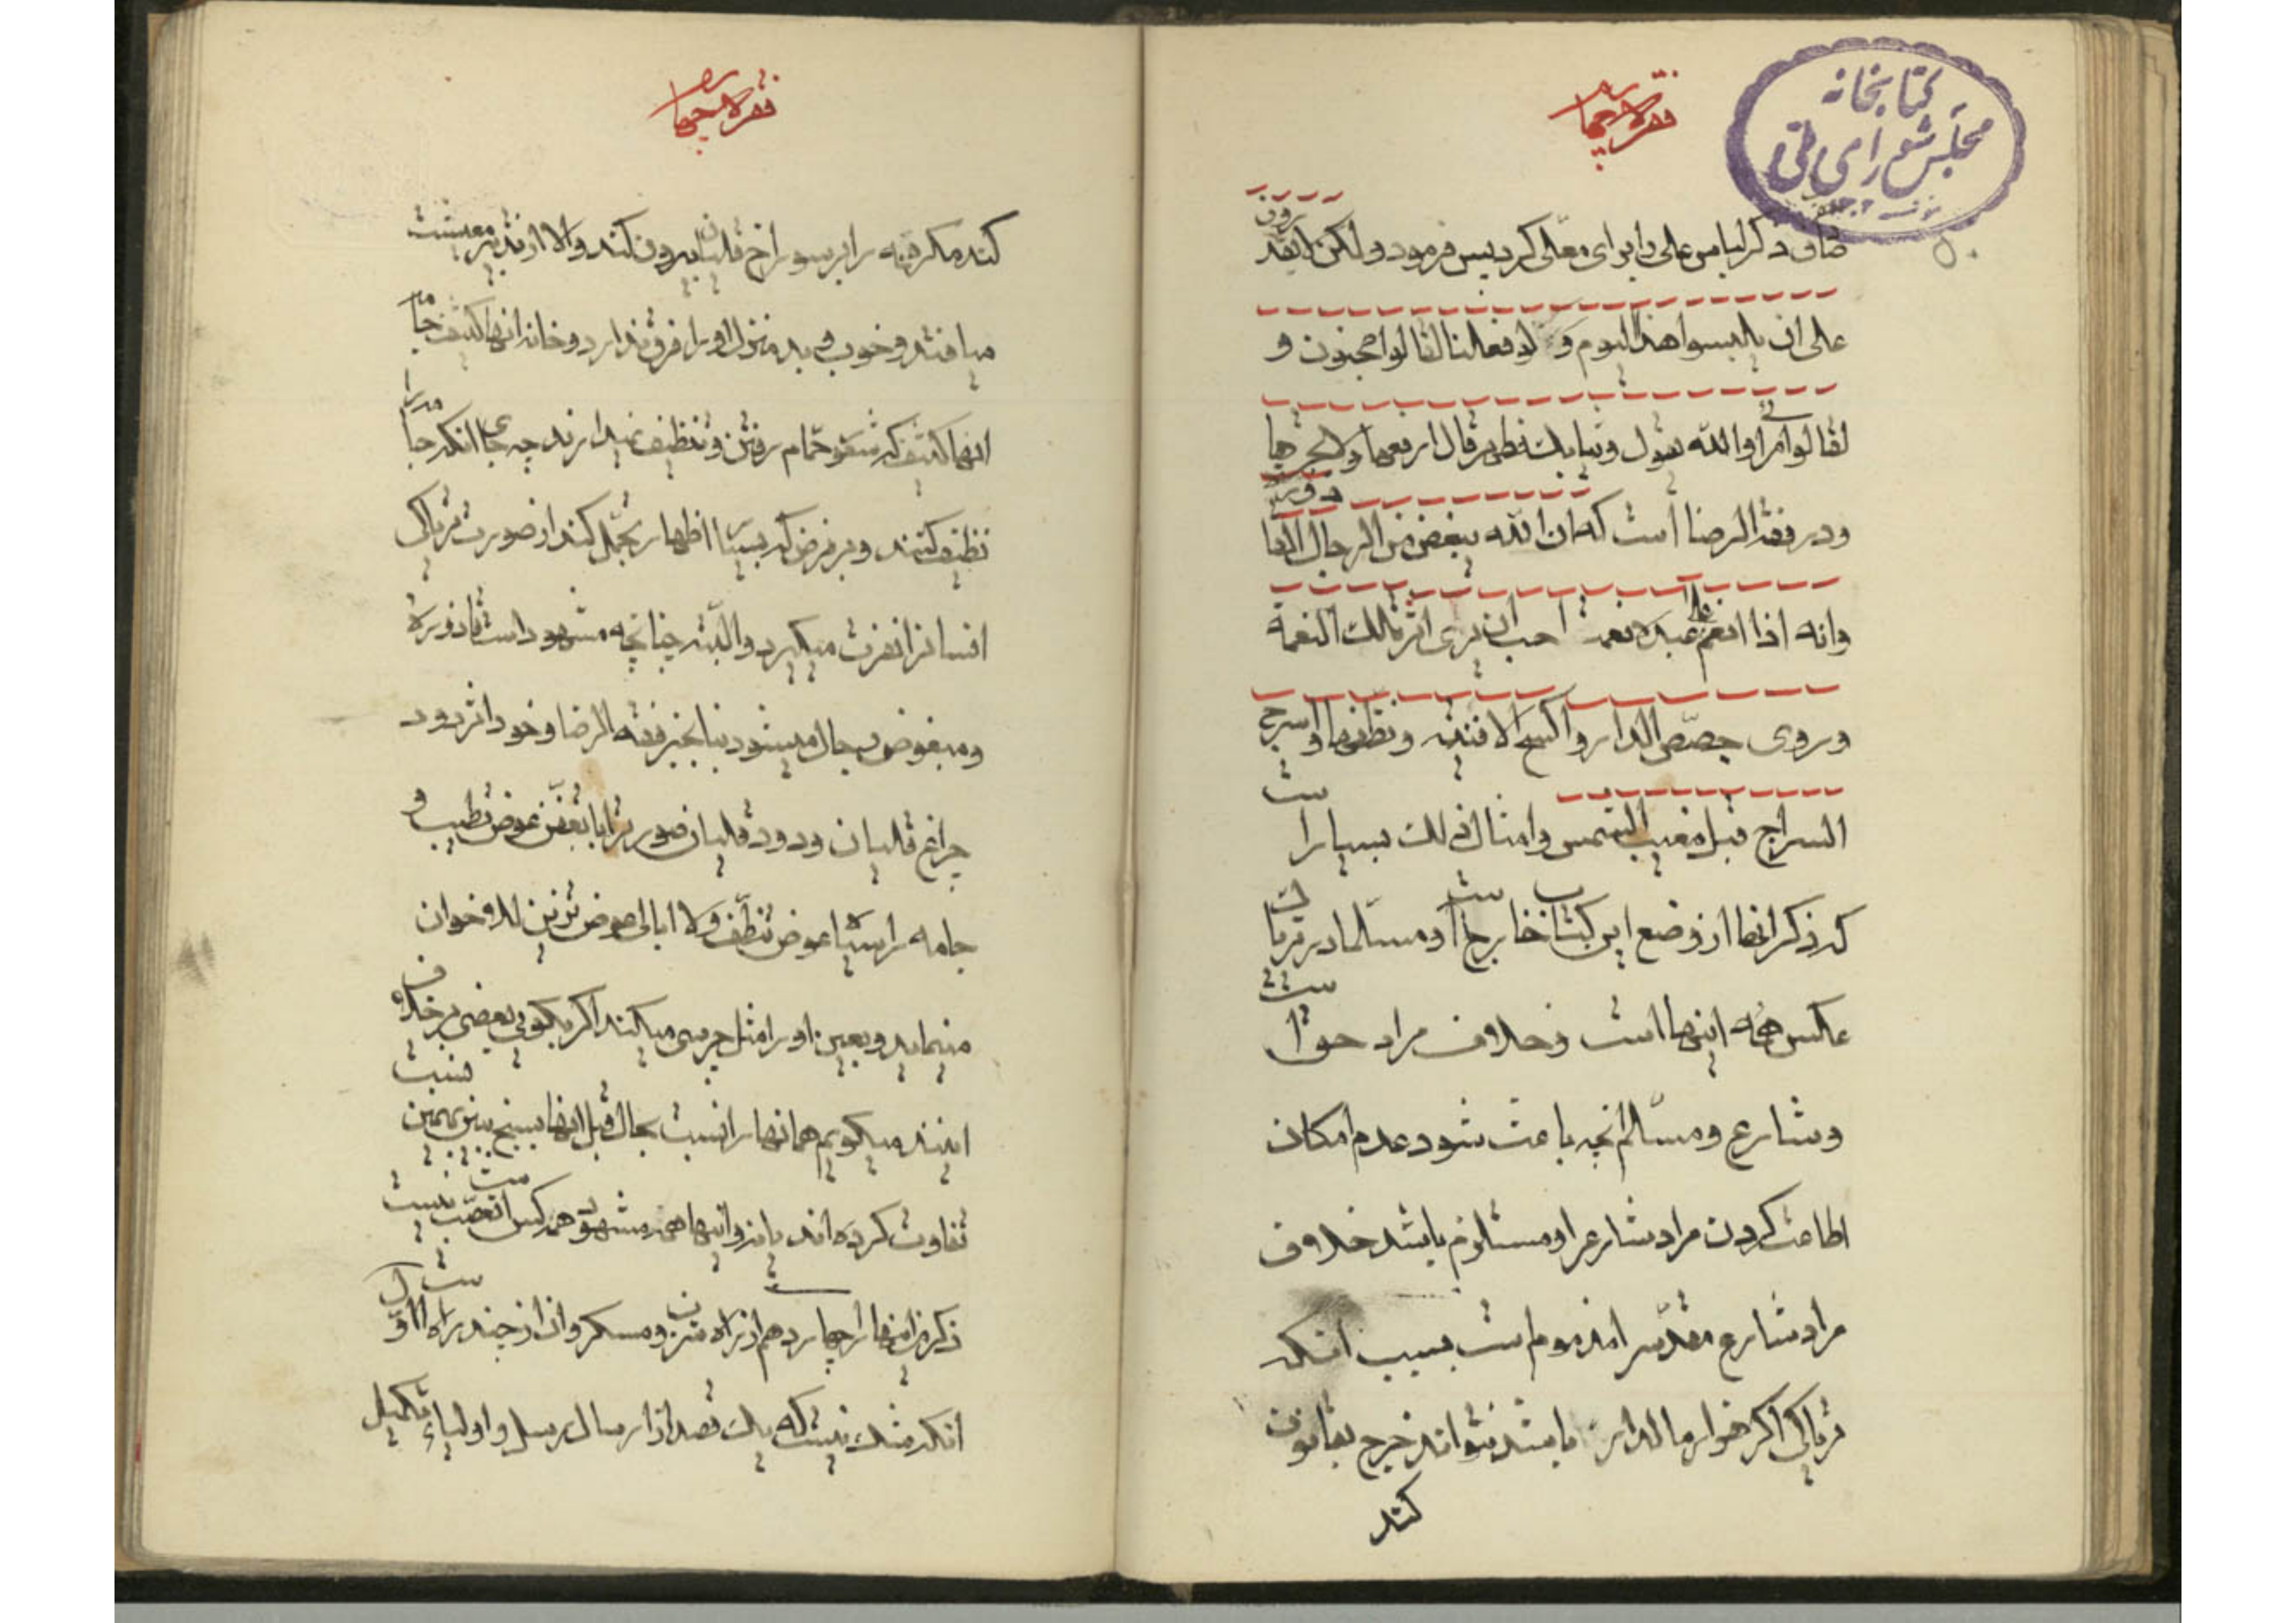 کتابخانه
مجلس شورای ملی
۵۰
صادق ذکر لباس علی را برای معلی کرد پس فرمود و لکن لا یقدرون
علی ان یلبسوا هذا الیوم و لو فعلنا لقالوا مجنون و
لقالوا مرائی و الله یقول و ثیابک فطهر قال ارفعها و لا تجرها
و در فقه الرضا است که ان الله یبغض من الرجال القاذورة
و انه اذا انعم علی عبده نعمة احب ان یری اثر تلک النعمة
و روی جصّص الدار و اکسح الافنیة و نظفها و اسرج
السراج قبل مغیب الشمس و امثال ذلک بسیار است
که ذکر انها از وضع این کتاب خارج است و مسلما در تریاک
عکس همه اینهااست و خلاف مراد حق است
و شارع و مسلّم انچه باعث شود عدم امکان
اطاعت کردن مراد شارع را و مستلزم باشد خلاف
مراد شارع مقدّس را مذموم است بسبب انکه
تریاکی اکر هزار مالدار باشد نتواند خرج بقانون
کند
کند مکر قبه را بر سوراخ قلیان بیرون کند و الا از تدبیر معیشت
میافتد و خوب و بد منزل او را فرق ندارد و خانه انها کثیف جامه
انها کثیف که شوق حمّام رفتن و تنظیف ندارند چه جای انکه جامه را
نظیف کنند و بر فرض که بسیار اظهار تجمّل کند از صورت تریاکی
انسانرا نفرت میکیرد و البته چنانچه مشهود است قاذوره
و مبغوض رجال میشود بنابخبر فقه الرضا و خود را نزد دود
چراغ قلیان و دود قلیان صور ترا با تعفّن عوض تطیب و
جامه را سیاه عوض تنظّف و لا ابالی عوض تزیین للاخوان
مینماید و بعین او را مثل چرسی میکند اکر بکوئی بعضی بر خلاف
اینند میکویم همانها را نسبت بحال قبل انها بسنج ببین بهمین نسبت
تفاوت کرده اند یا نه و اینها همه مشهود همه کس است تعصّب نیست
ذکر من انها را چهاردهم از راه متن و مسکر و ان از چند راه است اوّل
انکه شک نیست که یک قصد از ارسال رسل و اولیاء تکمیل